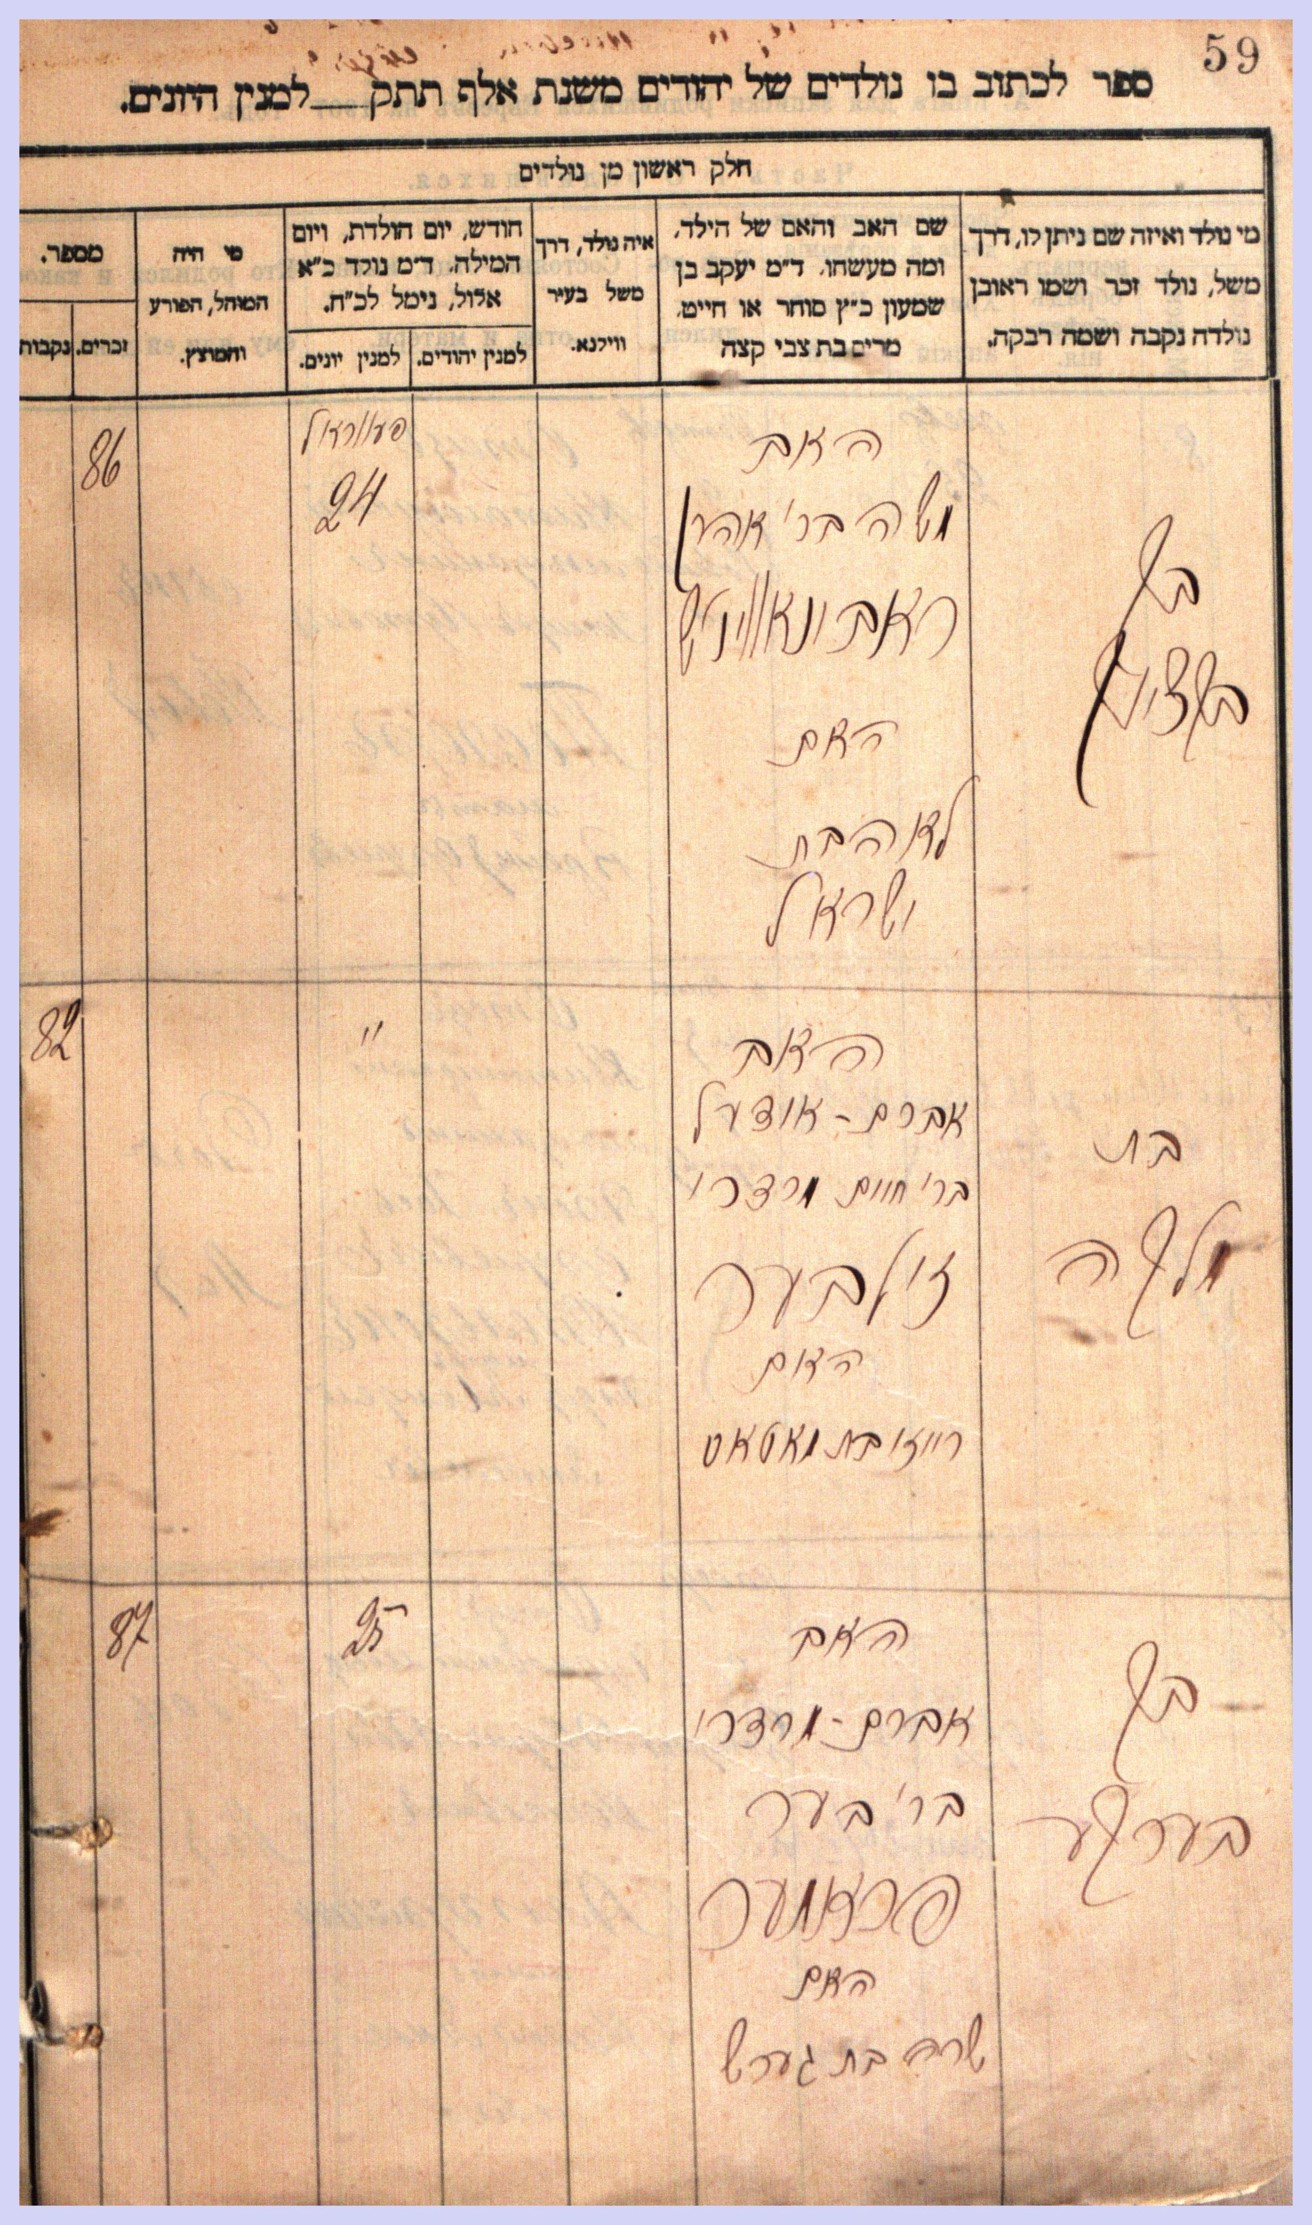 59
ספר לכתוב בו נולדים של יהודים משנת אלף תתק___למנין היונים.
חלק ראשון מן נולדים
מי נולד ואיזה שם ניתן לו, דרך
משל, נולד זכר ושמו ראובן
נולדה נקבה ושמה רבקה.
שם האב והאם של הילד,
ומה מעשהו. ד״מ יעקב בן
שמעון כ״ץ סוחר או חייט.
מרים בת צבי קצה
איה נולד, דרך
משל בעיר
ווילנא.
חודש, יום הולדת, ויום
המילה. ד״מ נולד כ״א
אלול, נימל לכ״ח.
למנין יהודים.
למנין יונים.
מי היה
המוהל, הפורע
והמוצץ.
מספר.
זכרים.
נקבות
בן
בן ציון
האב
משה בר׳ אהרן
ראבינאוויטש
האם
לאה בת
ישראל
פעווראל
24
86
בת
מלכה
האב
אברם - אודעל
בר׳ חיים מרדכי
זילבער
האם
רייזי בת מאטאט
״
82
בן
בערל
האב
אברם - מרדכי
בר׳ בער
פראמער
האם
שרה בת גערש
25
87